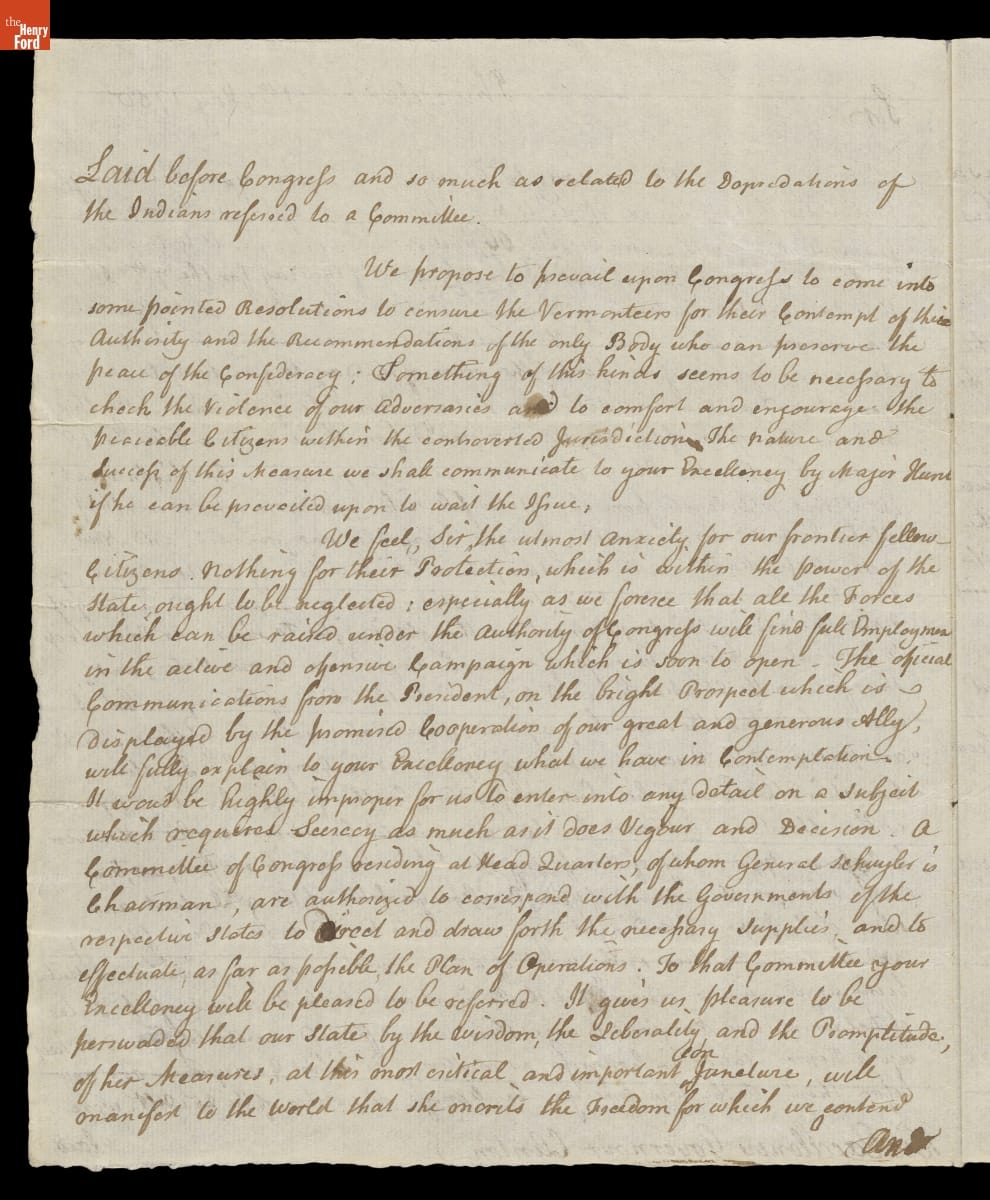 the
Henry
Ford
Laid before Congress and so much as related to the Depredations of
the Indians referred to a Committee.
We propose to prevail upon Congress to come into
some pointed Resolutions to censure the Vermonteers for their Contempt of their
Authority and the Recommendations of the only Body who can preserve the
peace of the Confederacy; Something of this kind seems to be necessary to
check the Violence of our Adversaries and to comfort and encourage the
peaceable Citizens within the controverted Jurisdiction. The nature and
Success of this Measure we shall communicate to your Excellency by Major Hunt
if he can be prevailed upon to wait the Issue,
We feel, Sir, the utmost Anxiety for our frontier fellow
Citizens. Nothing for their Protection, which is within the power of the
State, ought to be neglected; especially as we foresee that all the Forces
which can be raised under the Authority of Congress will find full Employmen
in the active and offensive Campaign which is soon to open. The official
Communications from the President, on the bright Prospect which is
displayed by the promised Cooperation of our great and generous Ally,
will fully explain to your Excellency what we have in Contemplation.
It woud be highly improper for us to enter into any detail on a subject
which requires Secrecy as much as it does Vigour and Decision. A
Committee of Congress residing at Head Quarters, of whom General Schuyler is
Chairman, are authorized to correspond with the Governments of the
respective States to Direct and draw forth the necessary supplies and to
effectuate, as far as possible, the Plan of Operations. To that Committee your
Excellency will be pleased to be referred. It gives us pleasure to be
perswaded that our State by the wisdom, the Leberality, and the Promptitude,
of her Measures, at this most critical and important Con Juncture, will
manifest to the World that she merits the Freedom for which we contend
And